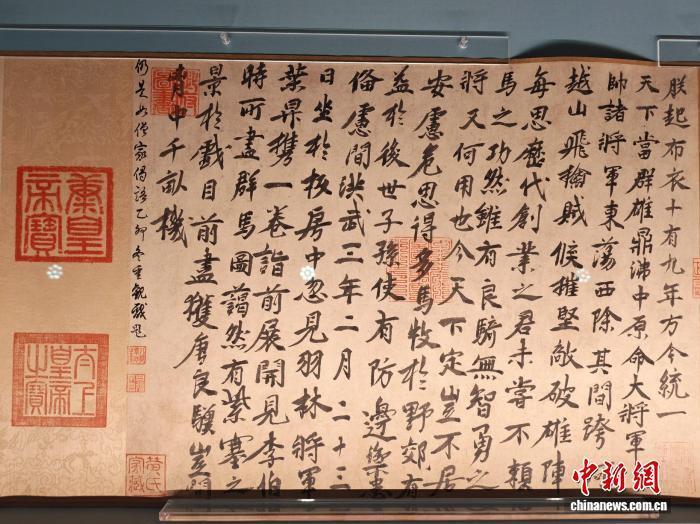 朕起布衣十有九年方今統一
天下當群雄鼎沸中原命大將軍
帥諸將軍東蕩西除其間跨
越山飛擒賊候摧堅敵破雄陣
每思歷代創業之君未嘗不賴
馬之功然雖有良騎無智勇之
將又何用也今天下定豈不居
安慮危思得多馬牧於野郊有
益於後世子孫使有防邊禦患
偹慮間洪武三年二月二十三
日坐於板房中忽見羽林將軍
葉昇携一卷詣前展開見李伯
時所畫群馬圖藹然有紫塞之
景於戲目前盡獲唐良驥豈問
胸中千畝機
仍是如僧家偈語乙卯冬重觀題
黃氏家藏
中新网
www.chinanews.com.cn